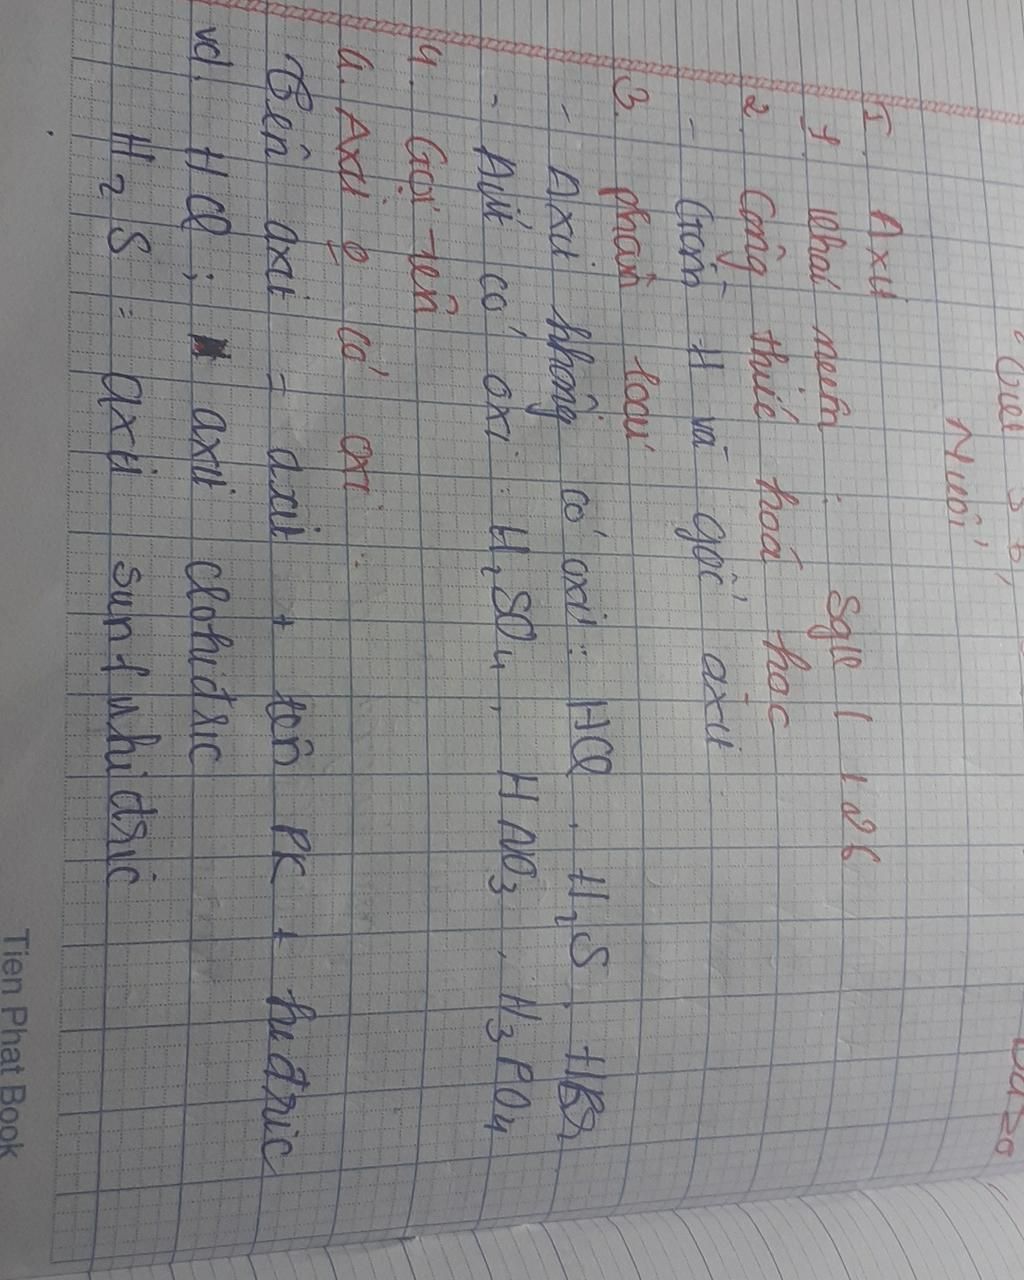 Muối
I. Axit
1. Khái niệm : Sgk / 126
2. Công thức hoá học
- Gồm H và gốc axit
3. phân loại
- Axit không có oxi: HCl, H₂S, HBr
- Axit có oxi: H₂SO₄, HNO₃, H₃PO₄
4. Gọi tên
a. Axit k có oxi:
Tên axit = axit + tên PK + hiđric
vd. HCl ; axit clohiđric
H₂S : axit sunfuhiđric
Tien Phat Book